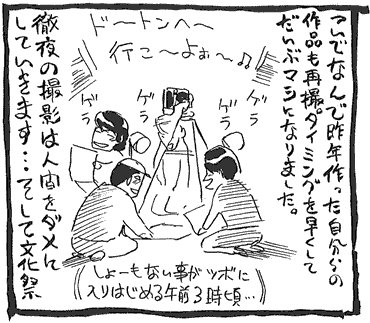 ついでなんで昨年作った自分らの
作品も再撮タイミングを早くして
だいぶマシになりました。
ド〜トンへ〜
行こ〜よぉ〜♫
ゲラ
ゲラ
ゲラ
ゲラ
(しょーもない事がツボに
入りはじめる午前3時頃…)
徹夜の撮影は人間をダメに
していきます…そして文化祭